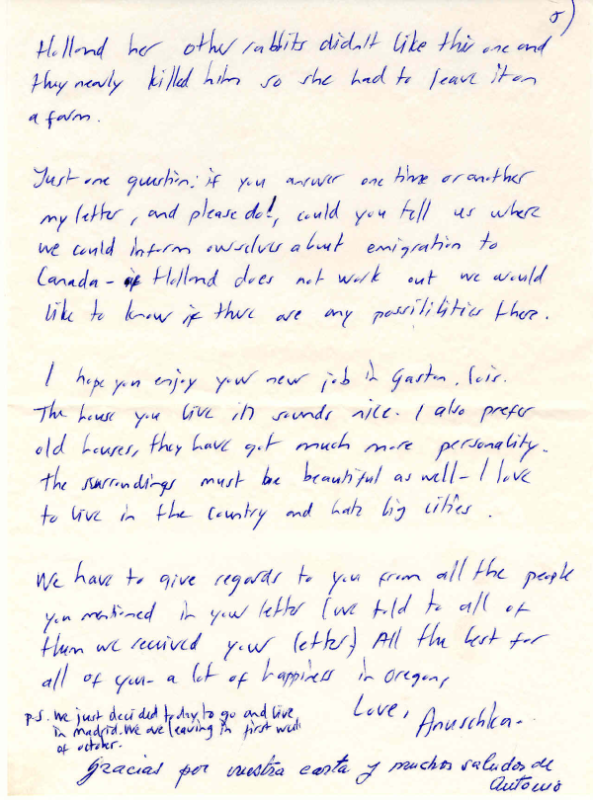 5)
Holland her other rabbits didn't like this one and
they nearly killed him so she had to leave it on
a farm.
Just one question: if you answer one time or another
my letter, and please do!, could you tell us where
we could inform ourselves about emigration to
Canada - if Holland does not work out we would
like to know if there are any possilities there.
I hope you enjoy your new job in Gaston, Lois.
The house you live in sounds nice. I also prefer
old houses, they have got much more personality.
The surrondings must be beautiful as well - I love
to live in the country and hate big cities.
We have to give regards to you from all the people
you mentioned in your letter (we told to all of
them we received your letter) All the best for
all of you - a lot of happiness in Oregon,
Love, Anuschka.
p.s. We just decided today to go and live
in madrid. We are leaving in first week
of october.
Gracias por vuestra carta y muchos saludos de
Antonio